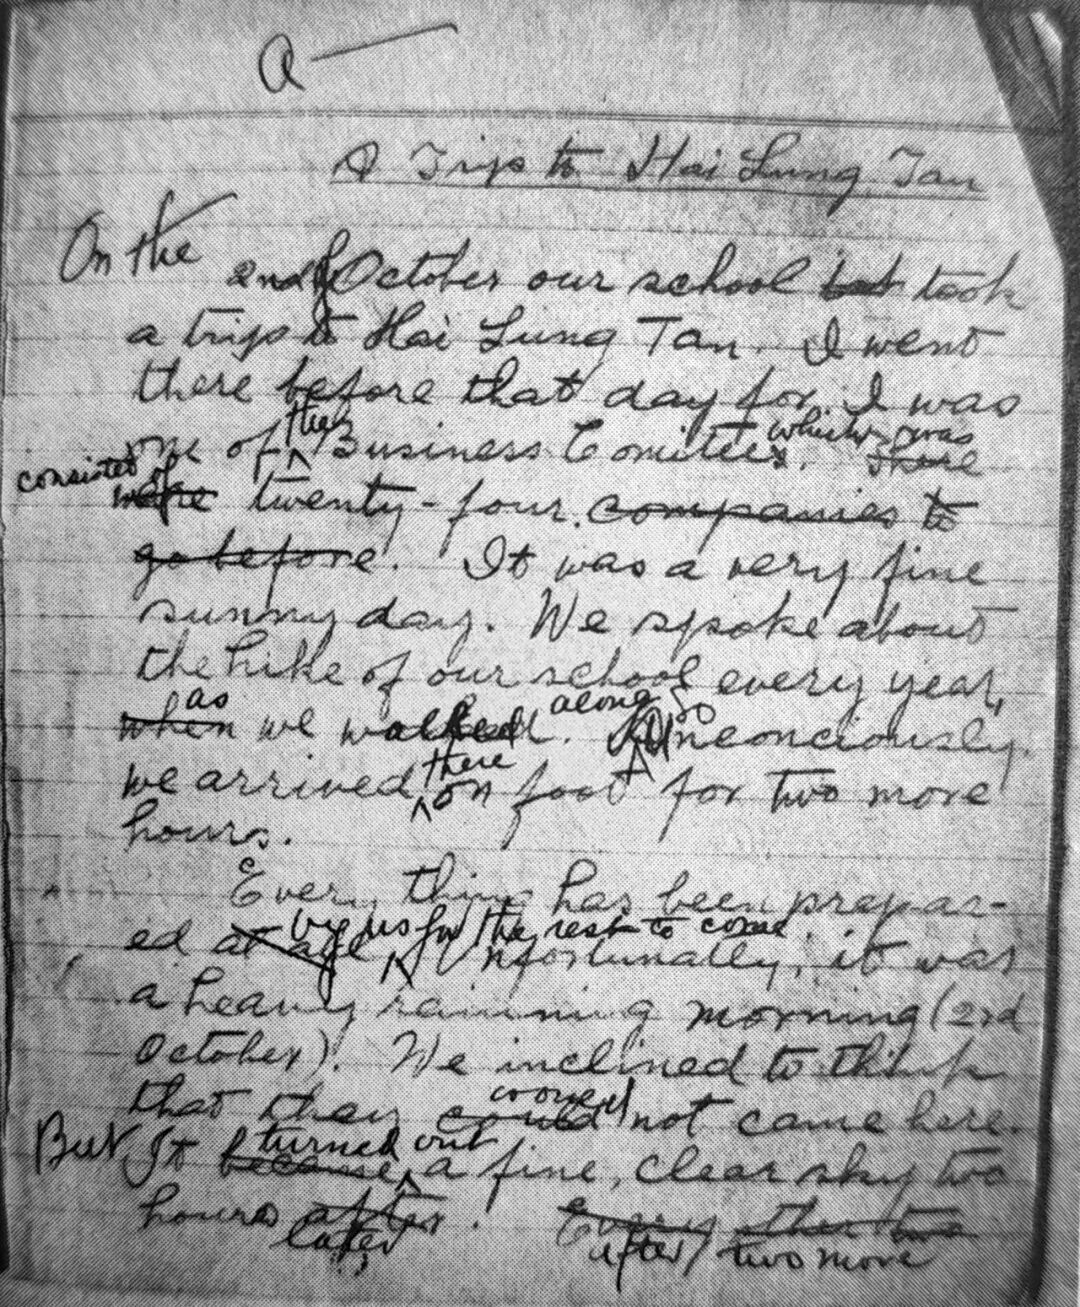 a—
A Trip to Hai Lung Tan
On the
2nd of October our school took
a trip to Hai Lung Tan. I went
there before that day for I was
one of Business Comittee. which was
consisted of
were twenty-four. companies to
go before. It was a very fine
sunny day. We spoke about
the hike of our school every year,
as along so
when we walked. Unconciously,
there
we arrived on foot for two more
hours.
Every thing has been prepar-
by us for the rest to come.
ed at Unfortunally, it was
a heavy raining morning (2nd
October). We inclined to think
would
that they could not came here.
But turned out
It became a fine, clear sky two
hours after. Every
later after two more